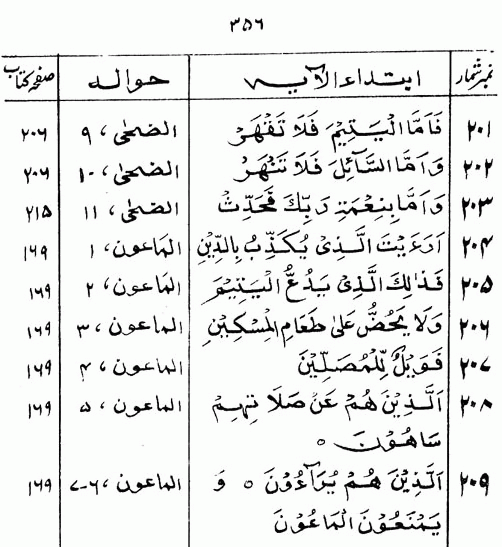 ۳۵۶
نمبر شمار ابتداء الآیہ حوالہ صفحہ کتاب
۲۰۱ فَاَمَّا الْیَتِیْمَ فَلَا تَقْهَرْ الضحٰی، ۹ ۲۰۶
۲۰۲ وَاَمَّا السَّآئِلَ فَلَا تَنْهَرْ الضحٰی، ۱۰ ۲۰۶
۲۰۳ وَاَمَّا بِنِعْمَةِ رَبِّكَ فَحَدِّثْ الضحٰی، ۱۱ ۲۱۵
۲۰۴ اَرَءَیْتَ الَّذِیْ یُكَذِّبُ بِالدِّیْنِ الماعون، ۱ ۱۶۹
۲۰۵ فَذٰلِكَ الَّذِیْ یَدُعُّ الْیَتِیْمَ الماعون، ۲ ۱۶۹
۲۰۶ وَلَا یَحُضُّ عَلٰی طَعَامِ الْمِسْكِیْنِ الماعون، ۳ ۱۶۹
۲۰۷ فَوَیْلٌ لِّلْمُصَلِّیْنَ الماعون، ۴ ۱۶۹
۲۰۸ الَّذِیْنَ هُمْ عَنْ صَلَاتِهِمْ الماعون، ۵ ۱۶۹
سَاهُوْنَ ○
۲۰۹ الَّذِیْنَ هُمْ یُرَآءُوْنَ ○ وَ الماعون، ۶-۷ ۱۶۹
یَمْنَعُوْنَ الْمَاعُوْنَ